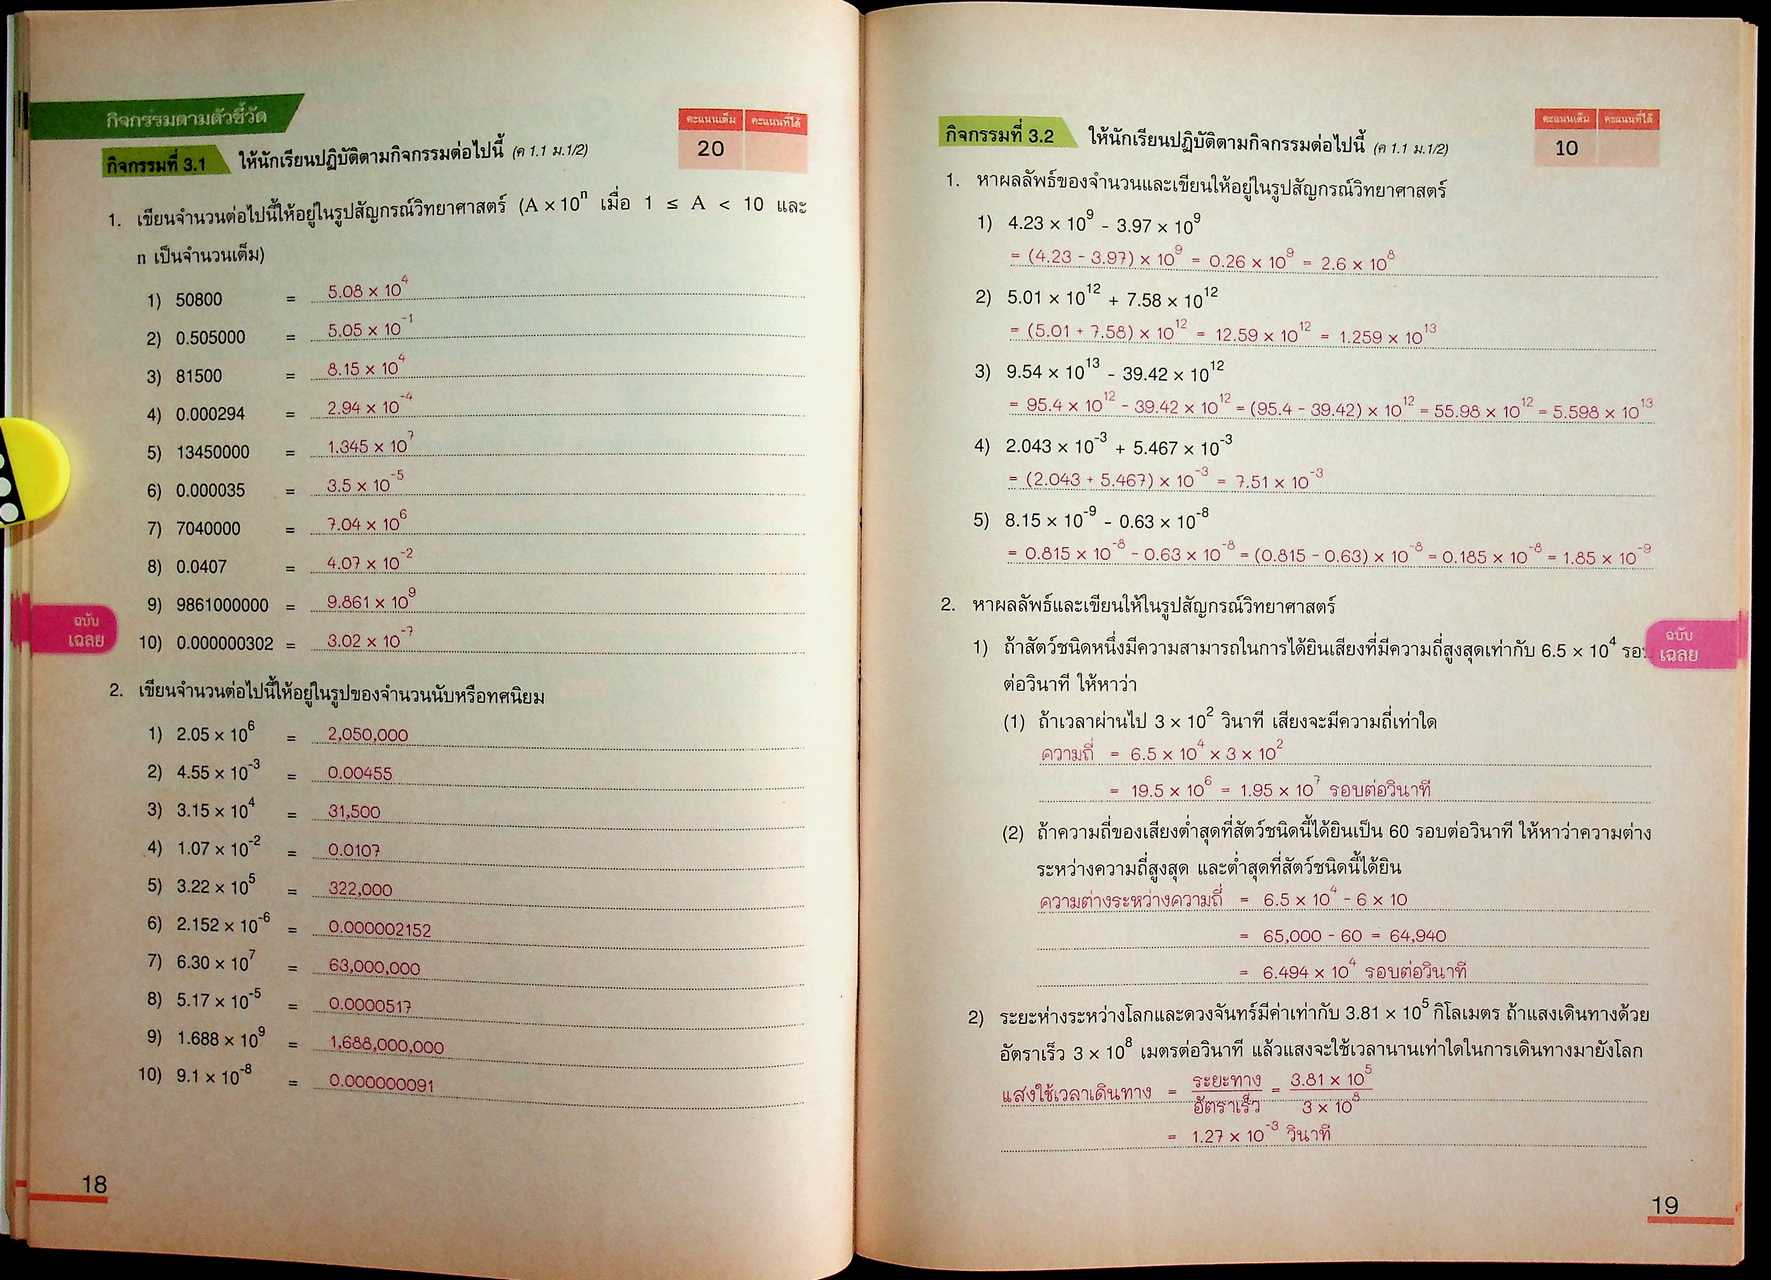 กิจกรรมตามตัวชี้วัด
คะแนนเต็ม คะแนนที่ได้
20
กิจกรรมที่ 3.1 ให้นักเรียนปฏิบัติตามกิจกรรมต่อไปนี้ (ค 1.1 ม.1/2)
1. เขียนจำนวนต่อไปนี้ให้อยู่ในรูปสัญกรณ์วิทยาศาสตร์ (A × 10ⁿ เมื่อ 1 ≤ A < 10 และ
n เป็นจำนวนเต็ม)
1) 50800 = 5.08 × 10⁴
2) 0.505000 = 5.05 × 10⁻¹
3) 81500 = 8.15 × 10⁴
4) 0.000294 = 2.94 × 10⁻⁴
5) 13450000 = 1.345 × 10⁷
6) 0.000035 = 3.5 × 10⁻⁵
7) 7040000 = 7.04 × 10⁶
8) 0.0407 = 4.07 × 10⁻²
9) 9861000000 = 9.861 × 10⁹
10) 0.000000302 = 3.02 × 10⁻⁷
ฉบับ
เฉลย
2. เขียนจำนวนต่อไปนี้ให้อยู่ในรูปของจำนวนนับหรือทศนิยม
1) 2.05 × 10⁶ = 2,050,000
2) 4.55 × 10⁻³ = 0.00455
3) 3.15 × 10⁴ = 31,500
4) 1.07 × 10⁻² = 0.0107
5) 3.22 × 10⁵ = 322,000
6) 2.152 × 10⁻⁶ = 0.000002152
7) 6.30 × 10⁷ = 63,000,000
8) 5.17 × 10⁻⁵ = 0.0000517
9) 1.688 × 10⁹ = 1,688,000,000
10) 9.1 × 10⁻⁸ = 0.000000091
18
คะแนนเต็ม คะแนนที่ได้
10
กิจกรรมที่ 3.2 ให้นักเรียนปฏิบัติตามกิจกรรมต่อไปนี้ (ค 1.1 ม.1/2)
1. หาผลลัพธ์ของจำนวนและเขียนให้อยู่ในรูปสัญกรณ์วิทยาศาสตร์
1) 4.23 × 10⁹ - 3.97 × 10⁹
= (4.23 - 3.97) × 10⁹ = 0.26 × 10⁹ = 2.6 × 10⁸
2) 5.01 × 10¹² + 7.58 × 10¹²
= (5.01 + 7.58) × 10¹² = 12.59 × 10¹² = 1.259 × 10¹³
3) 9.54 × 10¹³ - 39.42 × 10¹²
= 95.4 × 10¹² - 39.42 × 10¹² = (95.4 - 39.42) × 10¹² = 55.98 × 10¹² = 5.598 × 10¹³
4) 2.043 × 10⁻³ + 5.467 × 10⁻³
= (2.043 + 5.467) × 10⁻³ = 7.51 × 10⁻³
5) 8.15 × 10⁻⁹ - 0.63 × 10⁻⁸
= 0.815 × 10⁻⁸ - 0.63 × 10⁻⁸ = (0.815 - 0.63) × 10⁻⁸ = 0.185 × 10⁻⁸ = 1.85 × 10⁻⁹
2. หาผลลัพธ์และเขียนให้ในรูปสัญกรณ์วิทยาศาสตร์
1) ถ้าสัตว์ชนิดหนึ่งมีความสามารถในการได้ยินเสียงที่มีความถี่สูงสุดเท่ากับ 6.5 × 10⁴
ต่อวินาที ให้หาว่า
ฉบับ
เฉลย
(1) ถ้าเวลาผ่านไป 3 × 10² วินาที เสียงจะมีความถี่เท่าใด
ความถี่ = 6.5 × 10⁴ × 3 × 10²
= 19.5 × 10⁶ = 1.95 × 10⁷ รอบต่อวินาที
(2) ถ้าความถี่ของเสียงต่ำสุดที่สัตว์ชนิดนี้ได้ยินเป็น 60 รอบต่อวินาที ให้หาว่าความต่าง
ระหว่างความถี่สูงสุด และต่ำสุดที่สัตว์ชนิดนี้ได้ยิน
ความต่างระหว่างความถี่ = 6.5 × 10⁴ - 6 × 10
= 65,000 - 60 = 64,940
= 6.494 × 10⁴ รอบต่อวินาที
2) ระยะห่างระหว่างโลกและดวงจันทร์มีค่าเท่ากับ 3.81 × 10⁵ กิโลเมตร ถ้าแสงเดินทางด้วย
อัตราเร็ว 3 × 10⁸ เมตรต่อวินาที แล้วแสงจะใช้เวลานานเท่าใดในการเดินทางมายังโลก
แสงใช้เวลาเดินทาง = ระยะทาง/อัตราเร็ว = 3.81 × 10⁵/3 × 10⁸
= 1.27 × 10⁻³ วินาที
19